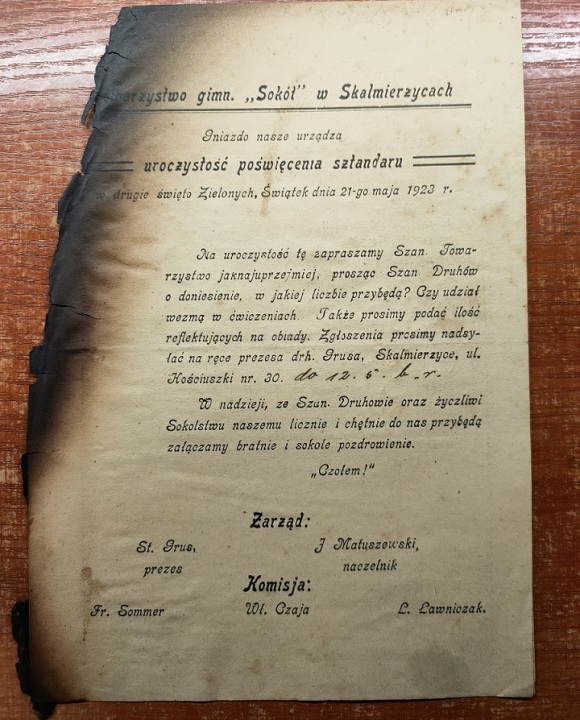 arzystwo gimn. „Sokół” w Skalmierzycach
Gniazdo nasze urządza
uroczystość poświęcenia sztandaru
w drugie święto Zielonych, Świątek dnia 21-go maja 1923 r.
Na uroczystość tę zapraszamy Szan. Towa-
rzystwo jaknajuprzejmiej, prosząc Szan. Druhów
o doniesienie, w jakiej liczbie przybędą? Czy udział
wezmą w ćwiczeniach. Także prosimy podać ilość
reflektujących na obiady. Zgłoszenia prosimy nadsy-
łać na ręce prezesa drh. Grusa, Skalmierzyce, ul.
Kościuszki nr. 30. do 12. 5. b. r.
W nadzieji, że Szan. Druhowie oraz życzliwi
Sokolstwu naszemu licznie i chętnie do nas przybędą
załączamy bratnie i sokole pozdrowienie.
„Czołem!”
Zarząd:
St. Grus, J Matuszewski,
prezes naczelnik
Komisja:
Fr. Sommer Wł. Czaja L. Ławniczak.